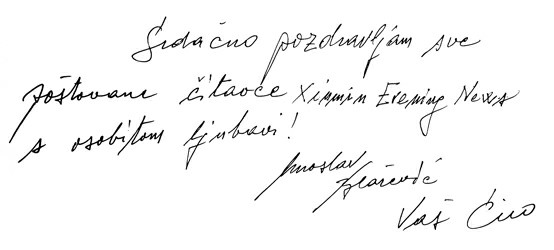 Srdačno pozdravljam sve
poštovane čitaoce Xinmin Evening News
s osobitom ljubavi!
Miroslav
Blažević
Vaš Ćiro